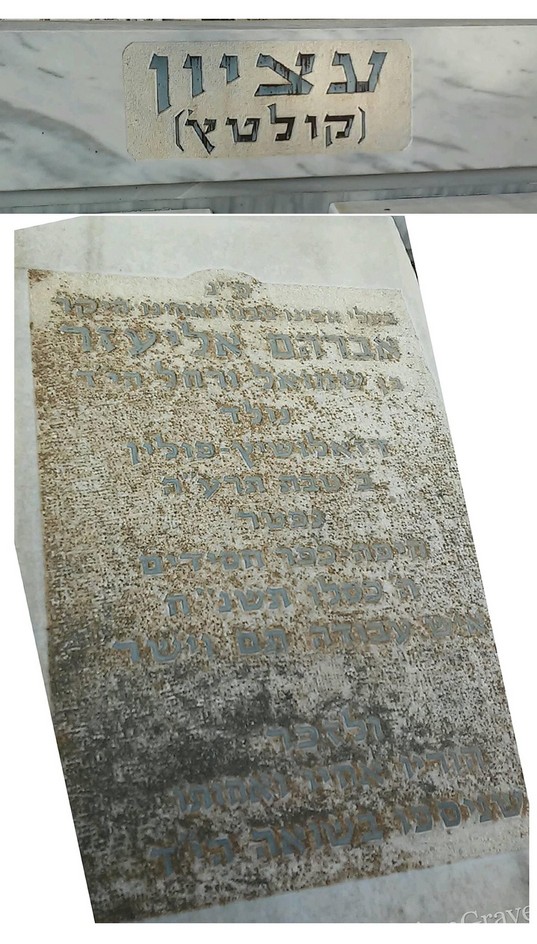 עציון
(קולטיץ)
פ"נ
בעלי אבינו סבנו ואחינו היקר
אברהם אליעזר
בן שמואל ורחל הי"ד
נולד
דזאלושיץ-פולין
ב' טבת תרע"ה
נפטר
חיפה-כפר חסידים
ה' כסלו תשנ"ח
איש עבודה תם וישר
ולזכר
הוריו אחיו ואחותו
שניספו בשואה הי"ד